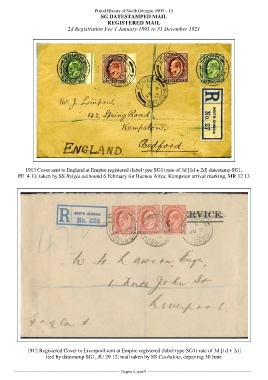 Postal History of South Georgia, 1909 - 13
SG DATESTAMPED MAIL
REGISTERED MAIL
2d Registration Fee 1 January 1891 to 31 December 1921
Mr J. Simpers,
142 Spring Road,
Kempston,
Bedford
ENGLAND.
R
SOUTH GEORGIA
No. 27
1913 Cover sent to England at Empire registered (label type SG1) rate of 3d [1d + 2d] datestamp SG1,
FE 4 13; taken by SS Bylgia outbound 6 February for Buenos Aires; Kempston arrival marking, MR 12 13
R
SOUTH GEORGIA
No. 226
SERVICE.
W. H. Lawson Esqr
1 North John St
Liverpool
England
1912 Registered Cover to Liverpool sent at Empire registered (label type SG1) rate of 3d [1d + 2d]
tied by datestamp SG1, JU 29 12; mail taken by SS Cachalote, departing 30 June